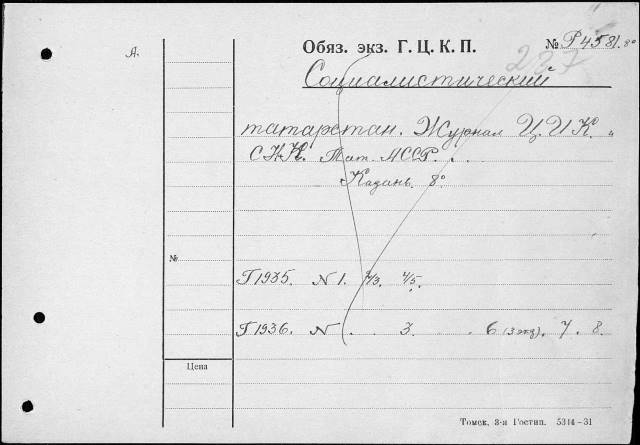 А.
Обяз. экз. Г. Ц. К. П.
№ Р4581.8°
237
Социалистический
татарстан. Журнал Ц.И.К. и
С.Н.К. Тат. АССР. . .
Казань 8°
№
Г 1935. N 1. 2/3. 4/5.
Г 1936. N . . 3 . . 6 (3 экз). 7. 8.
Цена
Томск, 3-я Гостип. 5314-31